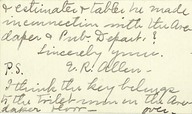 & estimates & tables he made
in connection with the Ara-
daper & Pub. Depart.!
Sincerely yours.
G. R. Allen.
P.S.
I think the key belongs
to the toilet-room on the Ara
daper floor —
over